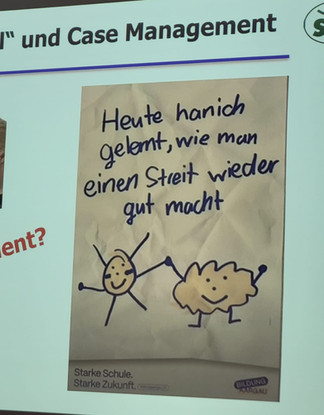 “ und Case Management
Heute hanich
gelernt, wie man
einen Streit wieder
gut macht
ent?
Starke Schule.
Starke Zukunft.
BILDUNG
AARGAU